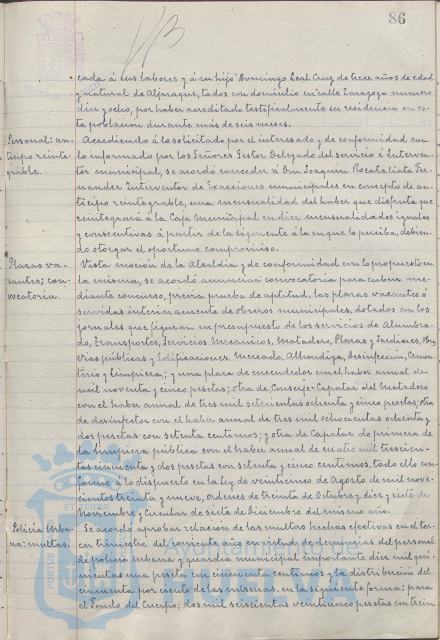 86
cada á sus labores y á su hijo Domingo Leal Cruz de trece años de edad
y natural de Aljaraque, todos con domicilio en calle Zaragoza numero
diez y ocho, por haber acreditado testifical su residencia en es-
ta población durante más de seis meses.
Personal: an-
ticipo reinte-
grable.
Accediendo á lo solicitado por el interesado y de conformidad con
lo informado por los Señores Gestor Delegado del servicio é Interven-
tor municipal, se acordó conceder á Don Joaquin Fer-
nandez Interventor de Exacciones municipales en concepto de an-
ticipo reintegrable, una mensualidad del haber que disfruta que
reintegrará á la Caja Municipal en diez mensualidades iguales
y consecutivas á partir de la siguiente á la en que lo perciba, debien-
do otorgar el oportuno compromiso.
Plazas va-
cantes; con-
vocatoria.
Vista moción de la Alcaldia y de conformidad con lo propuesto en
la misma, se acordó anunciar convocatoria para cubrir me-
diante concurso, previa prueba de aptitud, las plazas vacantes ó
servidas interinamente de obreros municipales, dotados con los
jornales que figuran en presupuesto de los servicios de Alumbra-
do, Transportes, Servicios Mecanicos, Matadero, Plazas y Jardines,
Vias públicas y Edificaciones, Mercado, Alhondiga, Desinfección, Cemen-
terio y Limpieza; y una plaza de encendedor con el haber anual de
mil noventa y cinco pesetas; otra de Conserje Capataz del Matadero
con el haber anual de tres mil setecientas ochenta y cinco pesetas; otra
de desinfector con el haber anual de tres mil ochocientas ochenta y
dos pesetas con setenta centimos; y otra de Capataz de primera de
la limpieza pública con el haber anual de cuatro mil trescien-
tas cincuenta y dos pesetas con setenta y cinco centimos, todo ello con-
forme á lo dispuesto en la Ley de veinticinco de Agosto de mil nove-
cientos treinta y nueve, Ordenes de treinta de Octubre y diez y siete de
Noviembre y Circular de siete de diciembre del mismo año.
Policia Urba-
na: multas.
Se acordó aprobar relación de las multas hechas efectivas en el ter-
cer trimestre del corriente año en virtud de denuncias del personal
de policia urbana y guardia municipal importante diez mil qui-
nientas una peseta con cincuenta centimos y la distribución del
cincuenta por ciento de las mismas en la siguiente forma: para
el Fondo del Cuerpo; dos mil seiscientas veinticinco pesetas con trein
Ayuntamiento